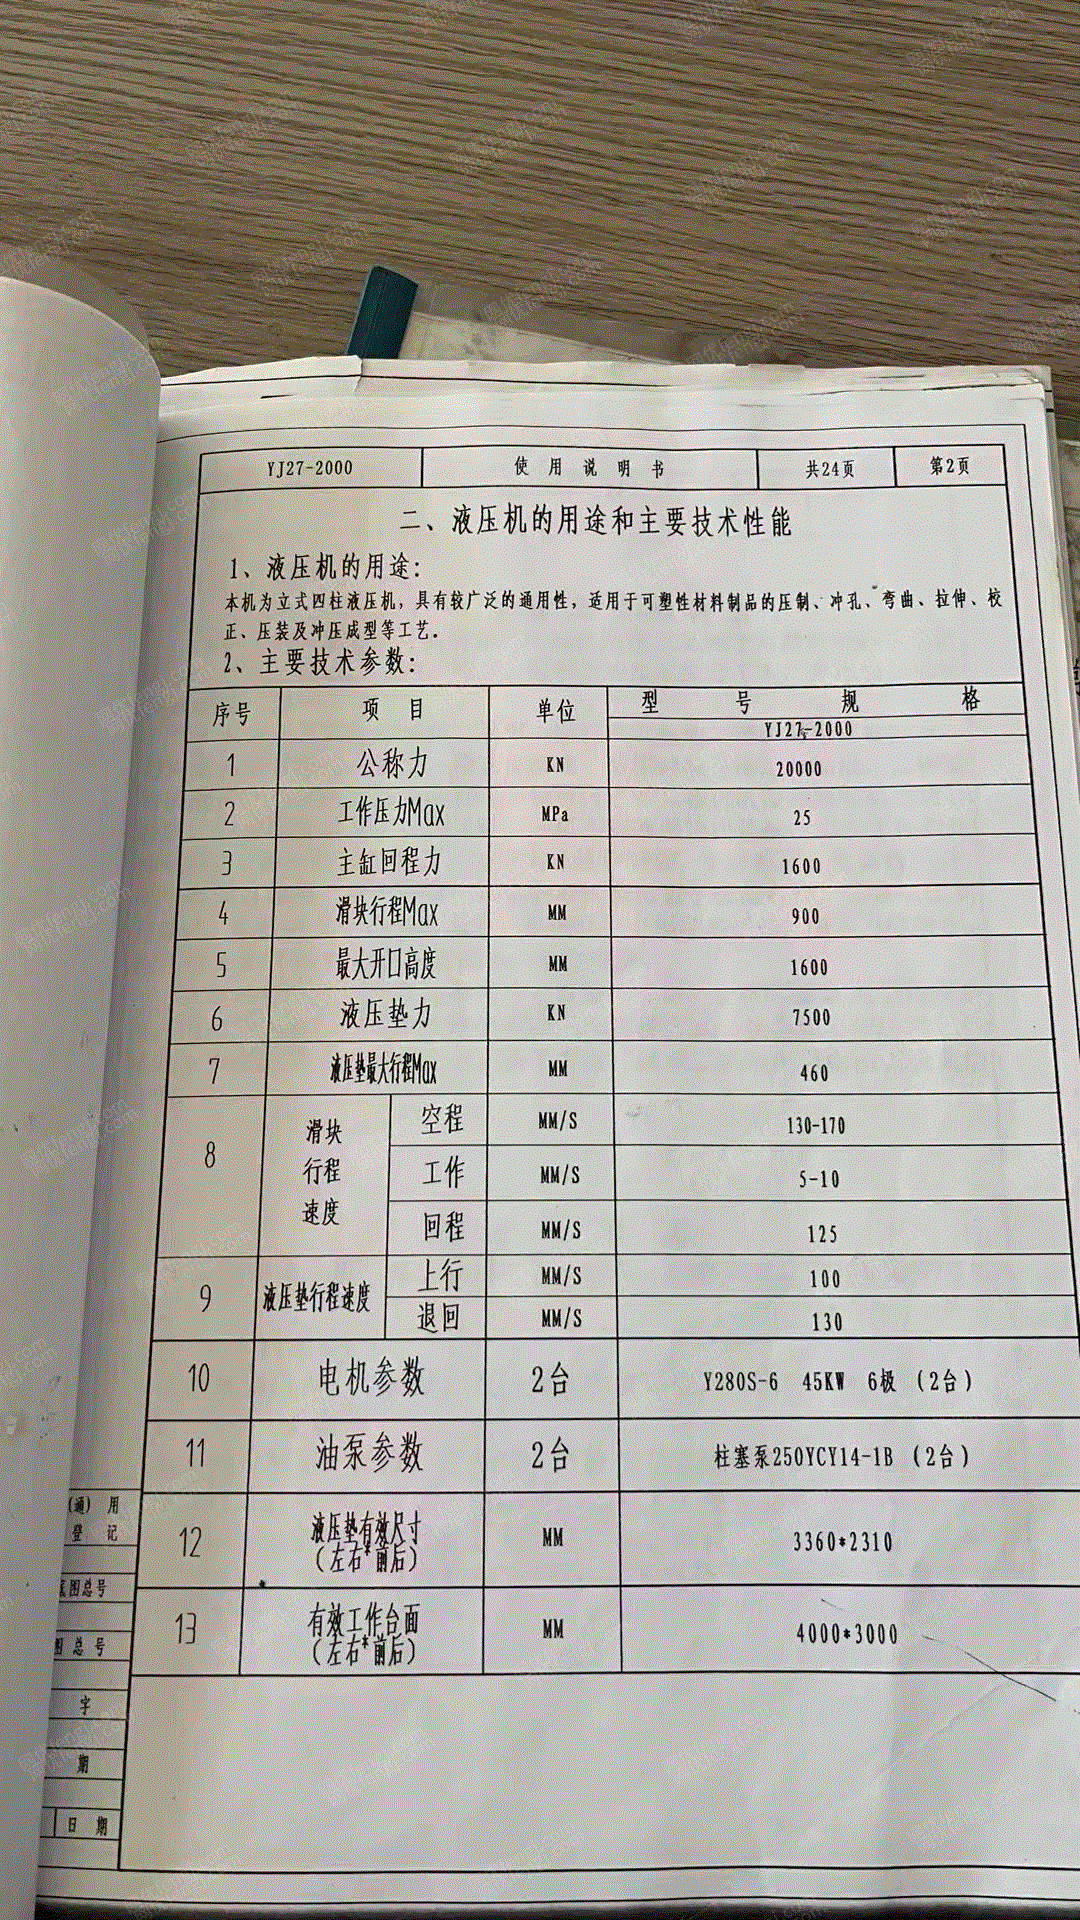 YJ27-2000 使用说明书 共24页 第2页
二、液压机的用途和主要技术性能
1、液压机的用途：
本机为立式四柱液压机，具有较广泛的通用性，适用于可塑性材料制品的压制、冲孔、弯曲、拉伸、校
正、压装及冲压成型等工艺。
2、主要技术参数：
序号 项目 单位 型号规格
YJ27-2000
1 公称力 KN 20000
2 工作压力Max MPa 25
3 主缸回程力 KN 1600
4 滑块行程Max MM 900
5 最大开口高度 MM 1600
6 液压垫力 KN 7500
7 液压垫最大行程Max MM 460
8 滑块行程速度 空程 MM/S 130-170
工作 MM/S 5-10
回程 MM/S 125
9 液压垫行程速度 上行 MM/S 100
退回 MM/S 130
10 电机参数 2台 Y280S-6 45KW 6极（2台）
11 油泵参数 2台 柱塞泵250YCY14-1B（2台）
12 液压垫有效尺寸 MM 3360*2310
（左右*前后）
13 有效工作台面 MM 4000*3000
（左右*前后）
（通）用
登记
底图总号
图总号
字
期
日期